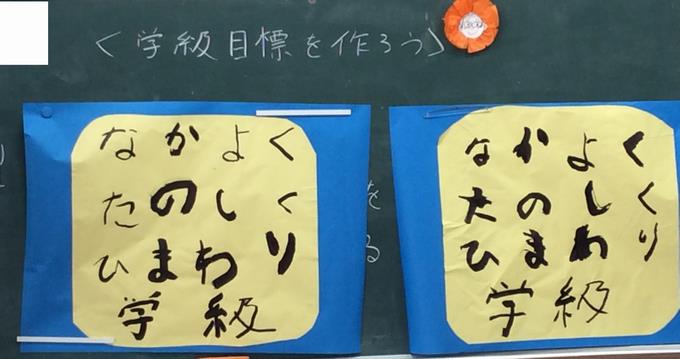 <学級目標を作ろう>
なかよく
たのしく
ひまわり
学級
なかよく
たのしく
ひまわり
学級
を
る